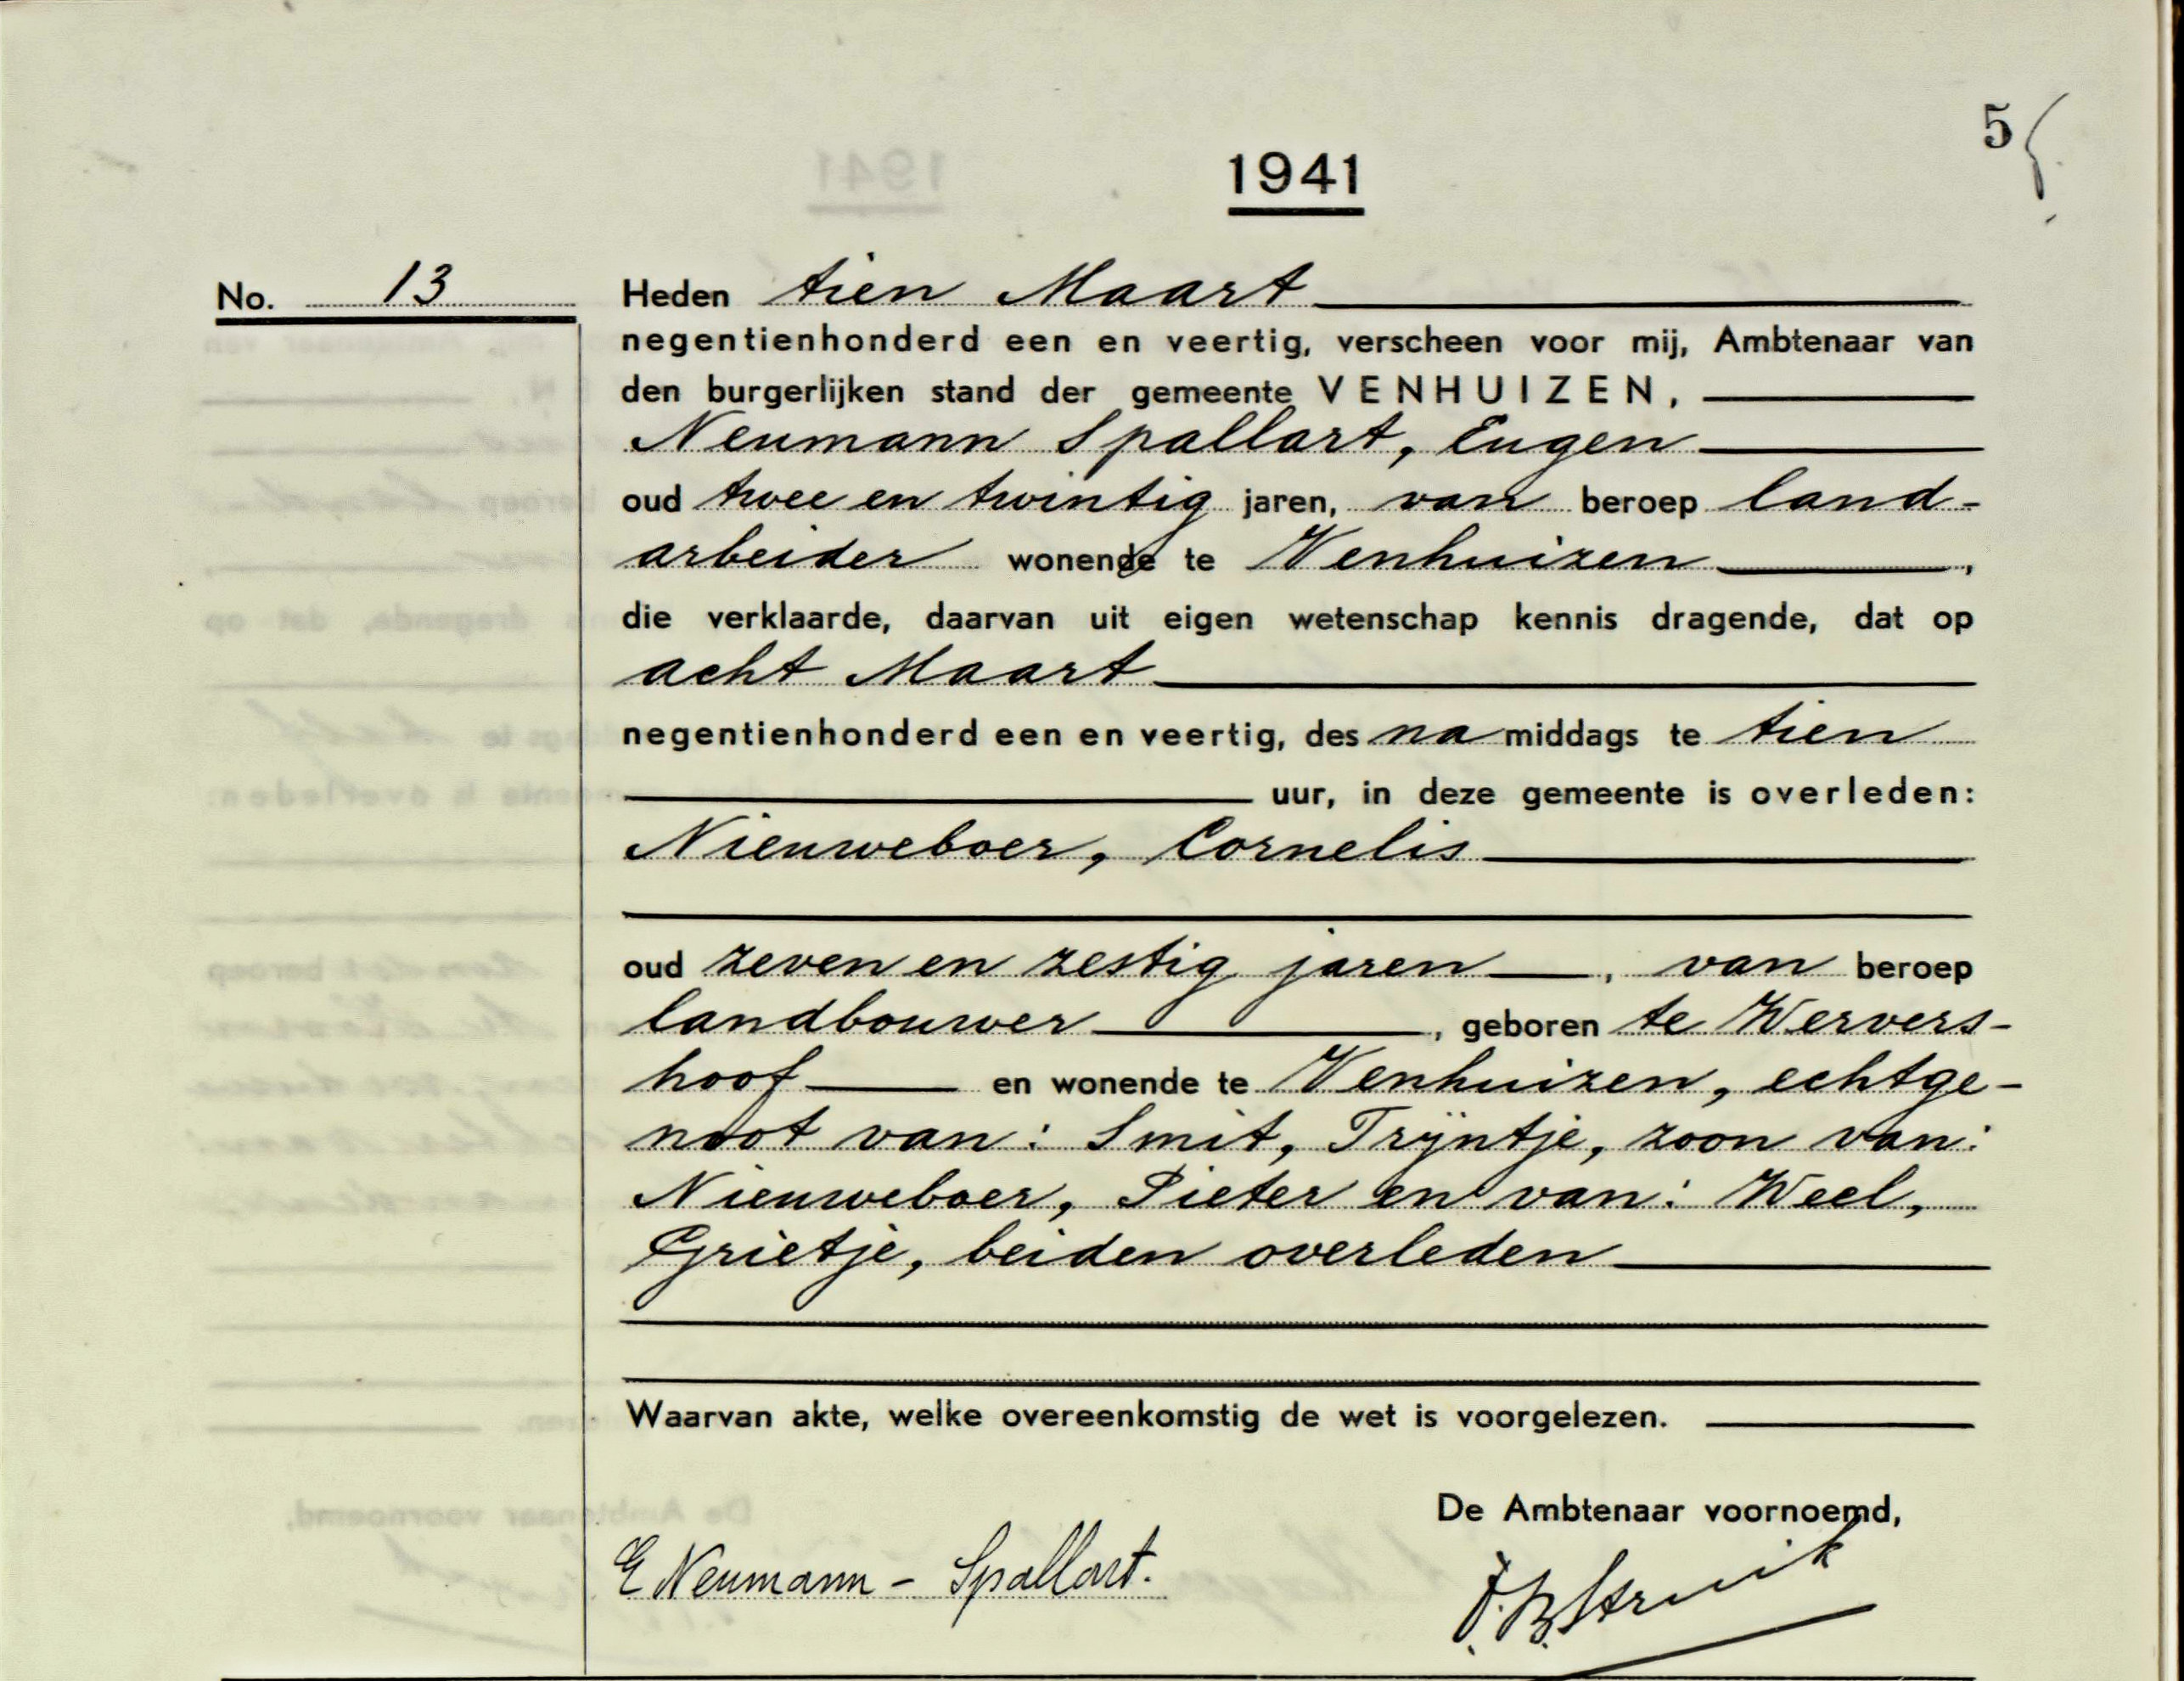 5
1941
No. 13
Heden tien Maart
negentienhonderd een en veertig, verscheen voor mij, Ambtenaar van
den burgerlijken stand der gemeente VENHUIZEN,
Neumann Spallart, Eugen
oud twee en twintig jaren, van beroep land-
arbeider wonende te Venhuizen,
die verklaarde, daarvan uit eigen wetenschap kennis dragende, dat op
acht Maart
negentienhonderd een en veertig, des na middags te tien
uur, in deze gemeente is overleden:
Nieuweboer, Cornelis
oud zeven en zestig jaren, van beroep
landbouwer, geboren te Wervers-
hoof en wonende te Venhuizen, echtge-
noot van: Smit, Trijntje, zoon van:
Nieuweboer, Pieter en van: Weel,
Grietje, beiden overleden
Waarvan akte, welke overeenkomstig de wet is voorgelezen.
De Ambtenaar voornoemd,
E Neumann - Spallart.